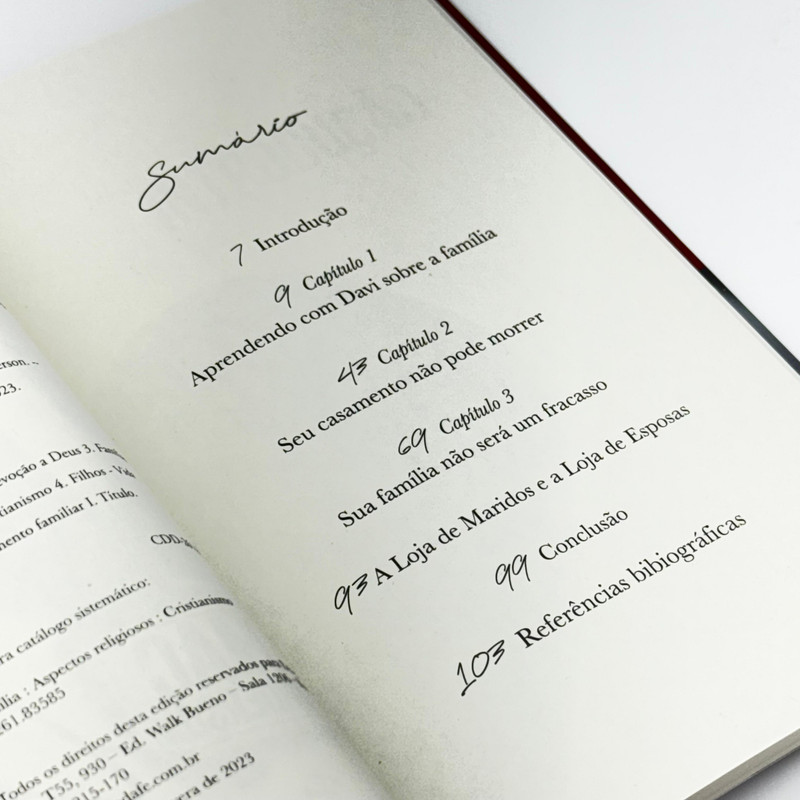 erson. –
23.
evoção a Deus 3.
tianismo 4. Filhos - Vida
mento familiar I. Título.
CDD
ra catálogo sistemático:
ília : Aspectos religiosos : Cristianismo
261.83585
Todos os direitos desta edição reservados para
T55, 930 – Ed. Walk Bueno – Sala
815-170
dafe.com.br
era de 2023
Sumário
7 Introdução
9 Capítulo 1
Aprendendo com Davi sobre a família
43 Capítulo 2
Seu casamento não pode morrer
69 Capítulo 3
Sua família não será um fracasso
93 A Loja de Maridos e a Loja de Esposas
99 Conclusão
103 Referências bibiográficas